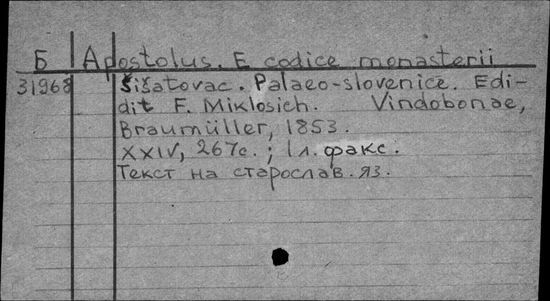 Б Apostolus. E codice monasterii
31968 Šišatovac. Palaeo-slovenice. Edi-
dit F. Miklosich. Vindobonae,
Braumüller, 1853.
XXIV, 267с. ; 1 л. факс.
Текст на старослав. яз.